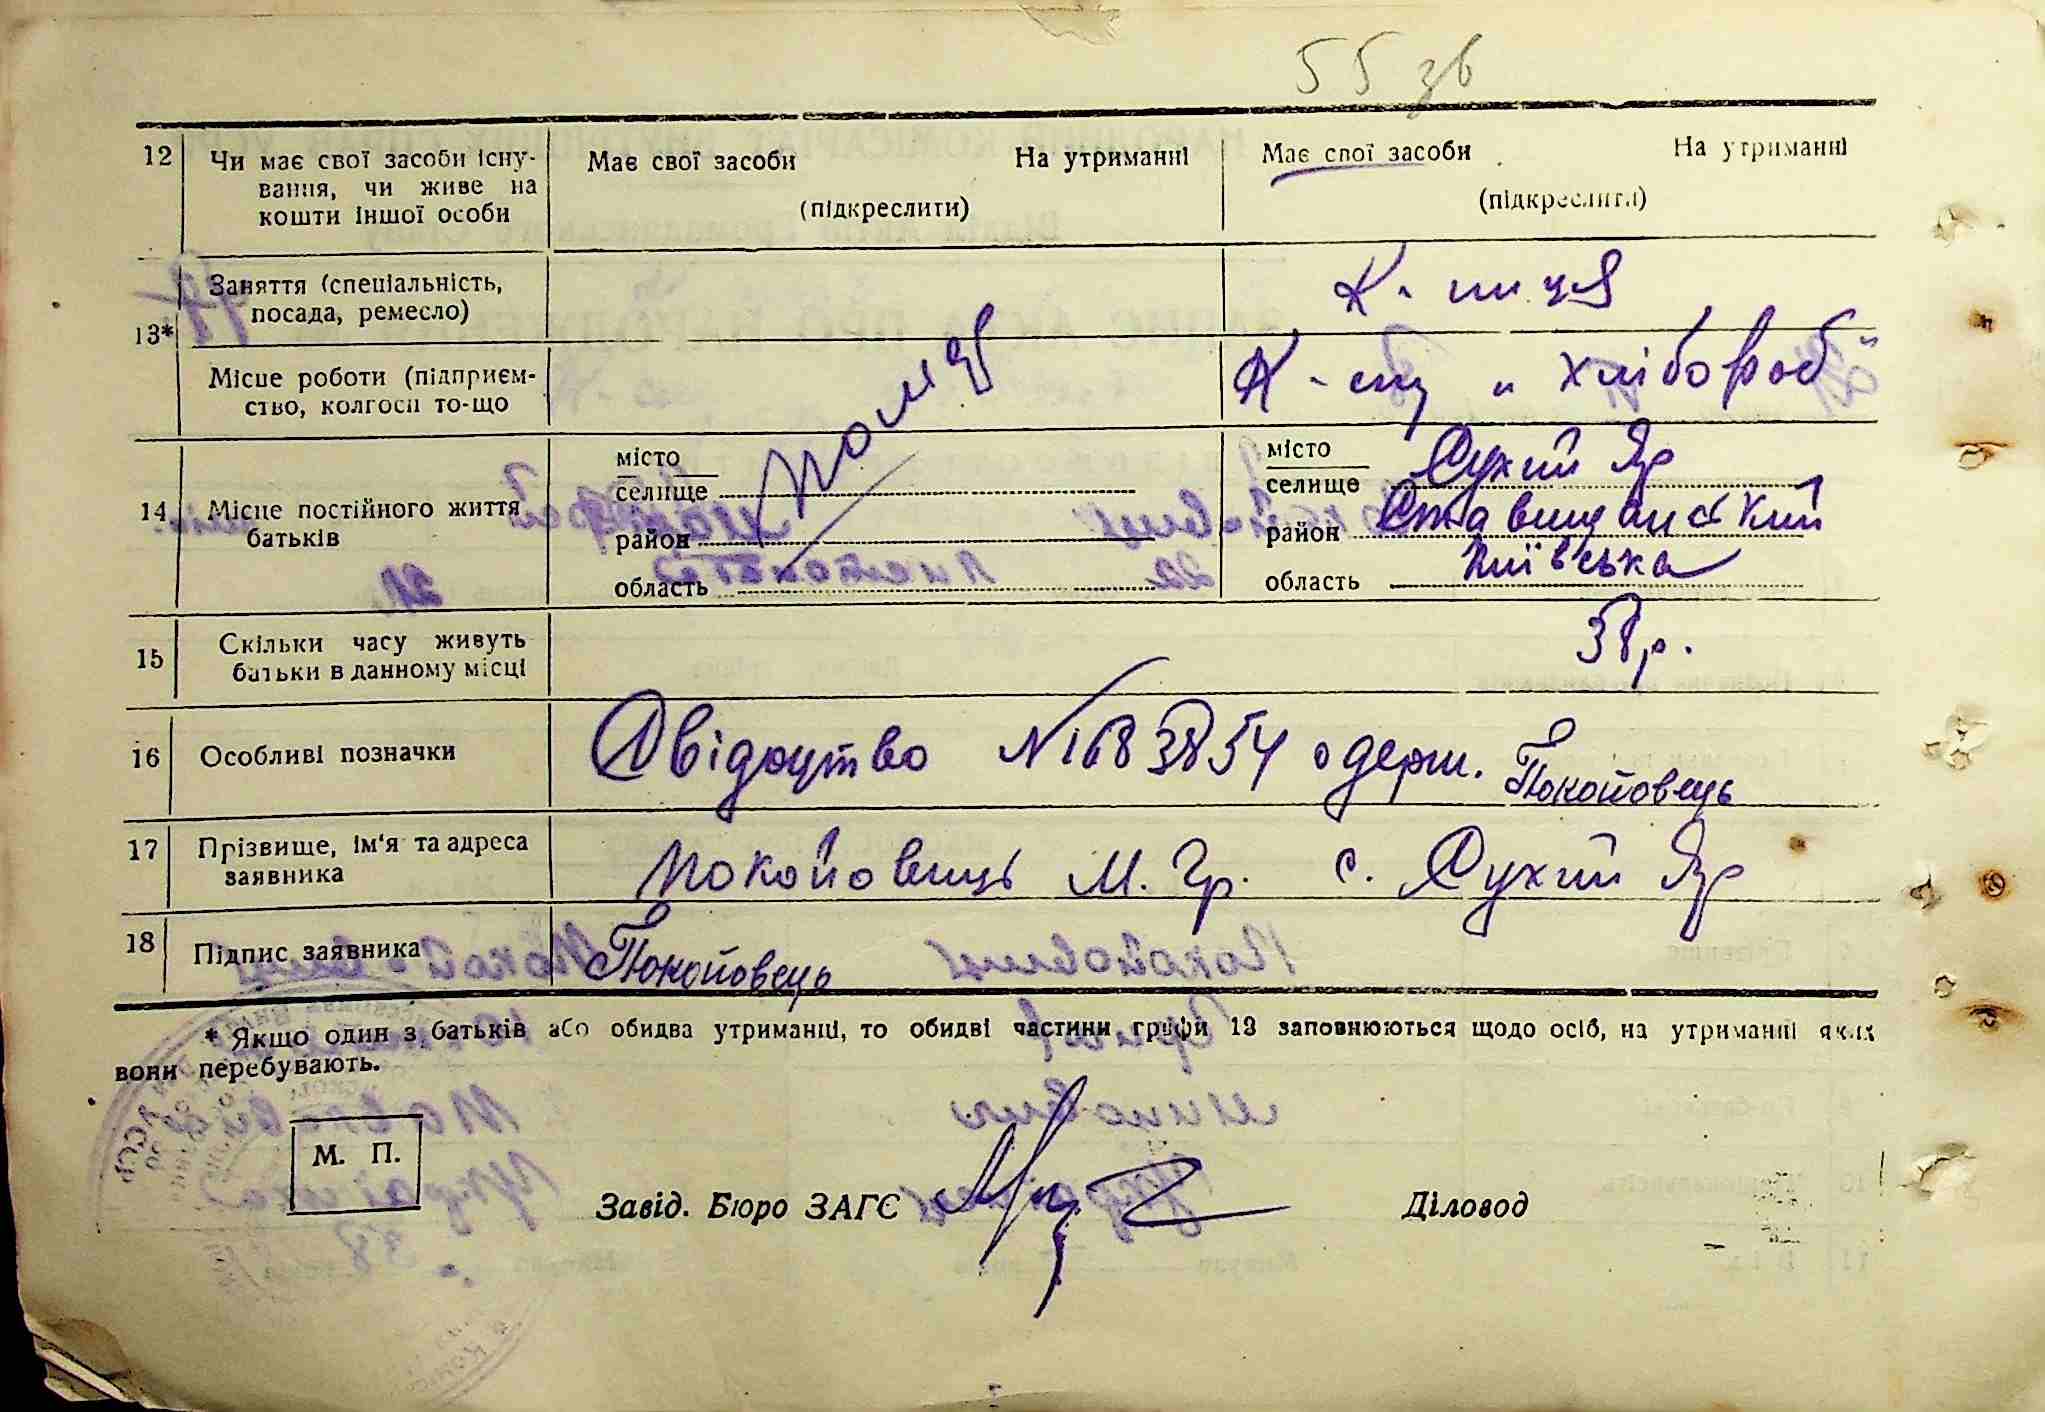 55 зв
12 Чи має свої засоби існу- Має свої засоби На утриманні Має свої засоби На утриманні
вання, чи живе на
кошти іншої особи (підкреслити) (підкреслити)
Заняття (спеціальність, К-ниця
посада, ремесло)
13*
Місце роботи (підприєм- К-сп „Хлібороб"
ство, колгосп то-що
помер
місто місто
селище Сухий Яр селище
14 Місце постійного життя район Ставищанський район
батьків
область область Київська
15 Скільки часу живуть 38 р.
батьки в данному місці
16 Особливі позначки Свідоцтво № 1683854 одерж. Покойовець
17 Прізвище, ім'я та адреса Покойовець М. Гр. с. Сухий Яр
заявника
18 Підпис заявника Покойовець
* Якщо один з батьків або обидва утриманці, то обидві частини графи 13 заповнюються щодо осіб, на утриманні яких
вони перебувають.
М. П.
Завід. Бюро ЗАГС Діловод